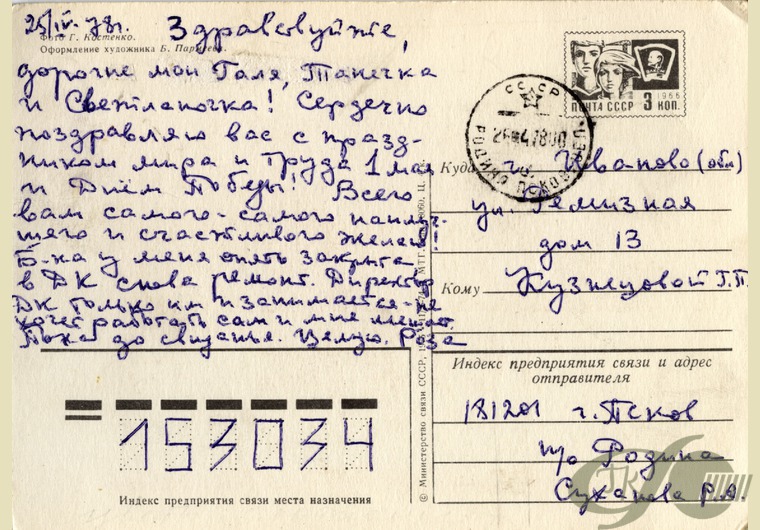 25/IV-78г. Здравствуйте,
Фото Г. Костенко.
Оформление художника Б.
дорогие мои Галя, Танечка
и Светланочка! Сердечно
поздравляю вас с празд-
ником мира и труда 1 мая
и Днём Победы! Всего
вам самого-самого наилуч-
шего и счастливого желаю!
Б-ка у меня опять закрыта
в ДК снова ремонт. Директор
ДК только им и занимается-не
хочет работать сам и мне мешает.
Пока до свиданья. Целую. Роза
ПОЧТА СССР 3 КОП.
1966
СССР
Куда г. Иваново (обл)
ул. Ремизная
дом 13
Кому Кузнецовой Г.П.
Индекс предприятия связи и адрес
отправителя
181201 г. Псков
п/о Родина
Суханова Р.А.
153034
Индекс предприятия связи места назначения
© Министерство связи СССР,